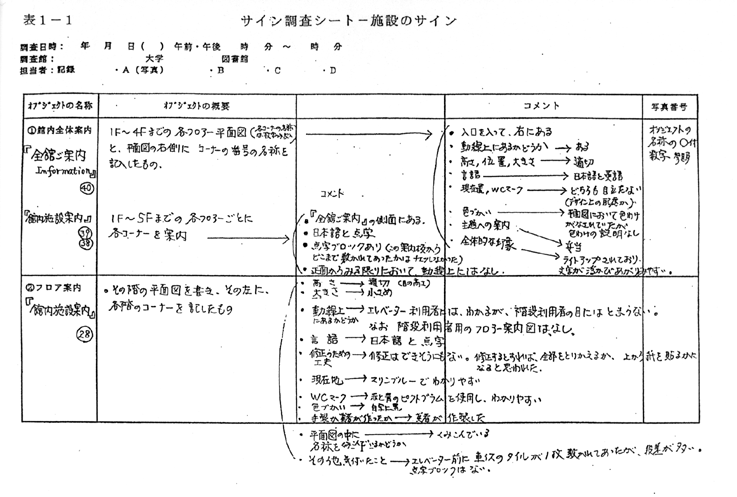 表1－1　サイン調査シート－施設のサイン
調査日時：　年　月　日（　）午前・午後　時　分　～　時　分
調査館：　大学　図書館
担当者：記録　・A（写真）　・B　・C　・D
ｵﾌﾞｼﾞｪｸﾄの名称　ｵﾌﾞｼﾞｪｸﾄの概要　コメント　写真番号
①館内全体案内
『全館ご案内
Information』
㊵
1F～4Fまでの各フロアー平面図
と、平面図の右側にコーナーの番号の名称を
記入したもの。
・入口を入って、右にある
・動線上にあるかどうか→ある
・高さ、位置、大きさ→適切
・言語→日本語と英語
・現在置、WCマーク→どちらも目立たない
・色づかい→平面図において色わけ
色わけの説明なし
・主題への案内→妥当
・全体的な印象→ライトアップされており、
文字が浮かびあがりやすい。
オブジェクトの
名称の〇付
数字
『館内施設案内』
㊴
㊳
1F～5Fまでの各フロアーごとに
各コーナーを案内
コメント
・『全館ご案内』の側面にある。
・日本語と点字
・点字ブロックあり
・正面からみる限りにおいて、動線上にはなし。
②フロア案内
『館内施設案内』
㉘
・その階の平面図を書き、その左に、
各階のコーナーを記したもの
・高さ→適切（目の高さ）
・大きさ→小さめ
・動線上にあるかどうか→エレベーター利用者には、わかるが、階段利用者の目にはとまらない。
なお 階段利用者用のフロアー案内図はなし。
・言語→日本語と点字
・修正のための工夫→修正はできそうにもない。修正するとすれば、全部をとりかえるか、上から紙を貼るかに
なると思われた。
・現在地→マリンブルーでわかりやすい
・WCマーク→男と女のピクトグラムを使用し、わかりやすい
・色づかい→白字に黒
・手製か業者が作ったか→業者が作製した
・平面図の中に名称を→くみこんでいる
・その他、気付いたこと→エレベーター前に 車イスのタイルが1枚敷かれてあったが、段差が多い。
点字ブロックはない。